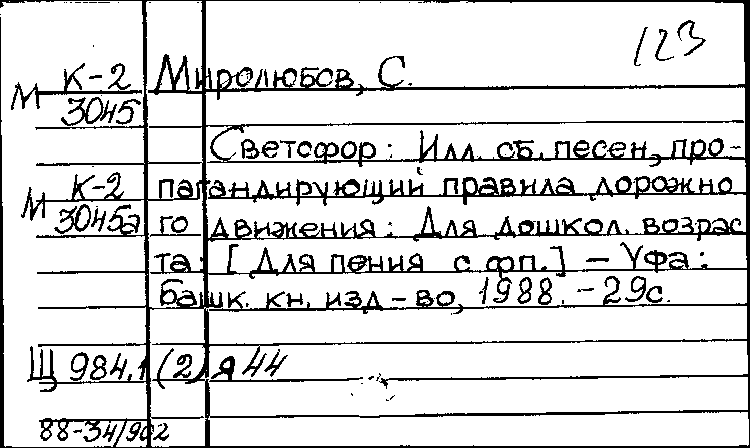 123
М К-2 Миролюбов, С.
3045
Светофор: Илл. сб. песен, про-
М К-2 пагандирующий правила дорожно
3045а го движения: Для дошкол. возрас
та: [Для пения с фп.] – Уфа:
Башк. кн. изд-во, 1988. – 29с.
Щ 984.1 (2) я 44
88-34/902